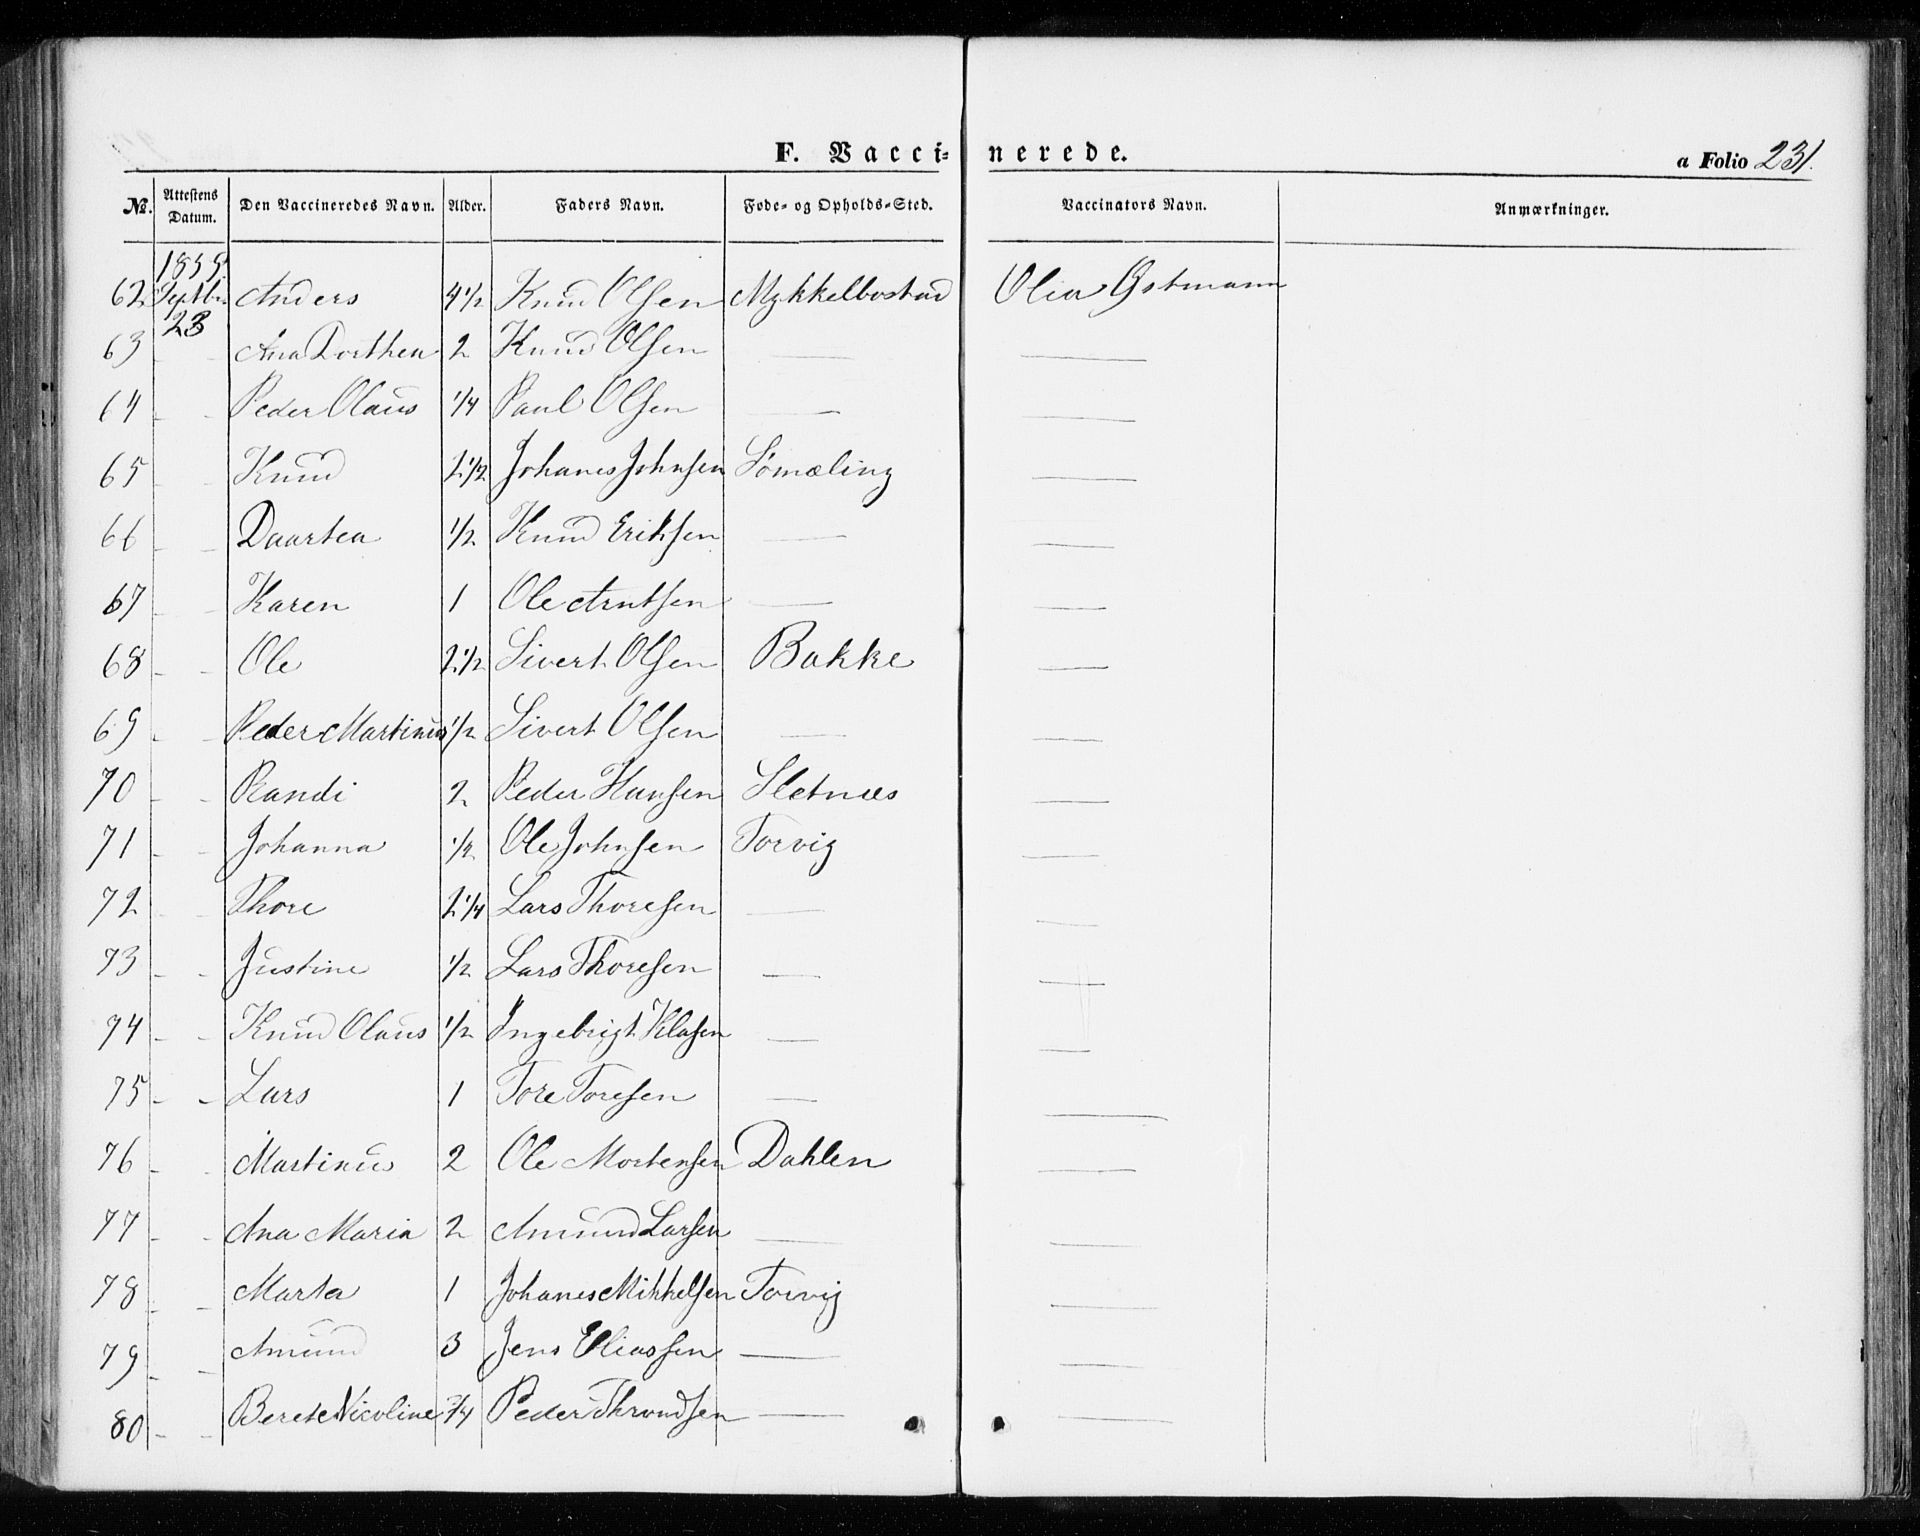 F. Vaccinerede. a Folio 231.
No. Attestens Datum. Den Vaccineredes Navn. Alder. Faders Navn. Føde- og Opholds-Sted. Vaccinators Navn. Anmærkninger.
1855
62 Septbr. Anders 4 1/2 Knud Olsen Mykkelbostad Olia Østmann
23
63 - - Ana Dorthea 2 Knud Olsen — —
64 - - Peder Olaus 1/4 Paul Olsen — —
65 - - Knud 2 1/2 Johanes Johnsen Sømæling —
66 - - Daartea 1/2 Knud Eriksen — —
67 - - Karen 1 Ole Arntsen — —
68 - - Ole 2 1/2 Sivert Olsen Bakke —
69 - - Peder Martinus 1/2 Sivert Olsen — —
70 - - Randi 2 Peder Hansen Sletnæs —
71 - - Johanna 1/2 Ole Johnsen Torvig —
72 - - Thore 2 1/4 Lars Thoresen — —
73 - - Justine 1/2 Lars Thoresen — —
74 - - Knud Olaus 1/2 Ingebrigt Klasen — —
75 - - Lars 1 Tore Toresen — —
76 - - Martinus 2 Ole Mortensen Dahlen —
77 - - Ana Maria 2 Amund Larsen — —
78 - - Marta 1 Johanes Mikkelsen Torvig —
79 - - Amund 3 Jens Eliassen — —
80 - - Berete Nicoline 3/4 Peder Throndsen — —